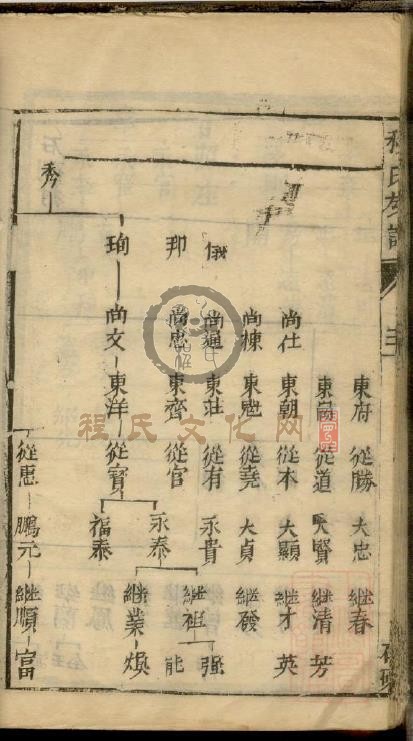 程氏族譜
東府 從勝 大忠 繼春
從道 大賢 繼清 芳
尚仕 東朝 從本 大顯 繼才 英
尚棟 從堯 大貞 繼發
俄 尚通 東莊 從有 永貴 繼祖 强
邦 尚忠 東齊 從官 永泰 能
珣 尚文 東洋 從寶 繼業 煥
福泰
秀
從惠 鵬元 繼順 富
程氏文化网